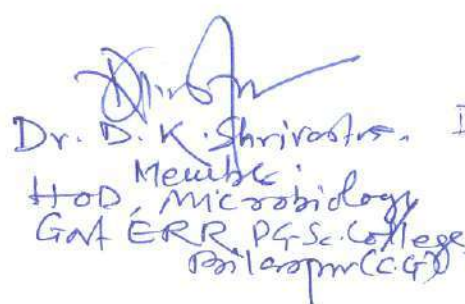 Dr. D. K. Shrivastva. I
Member.
HOD, Microbiology
Govt ERR PG Sc. College,
Bilaspur (C.G)